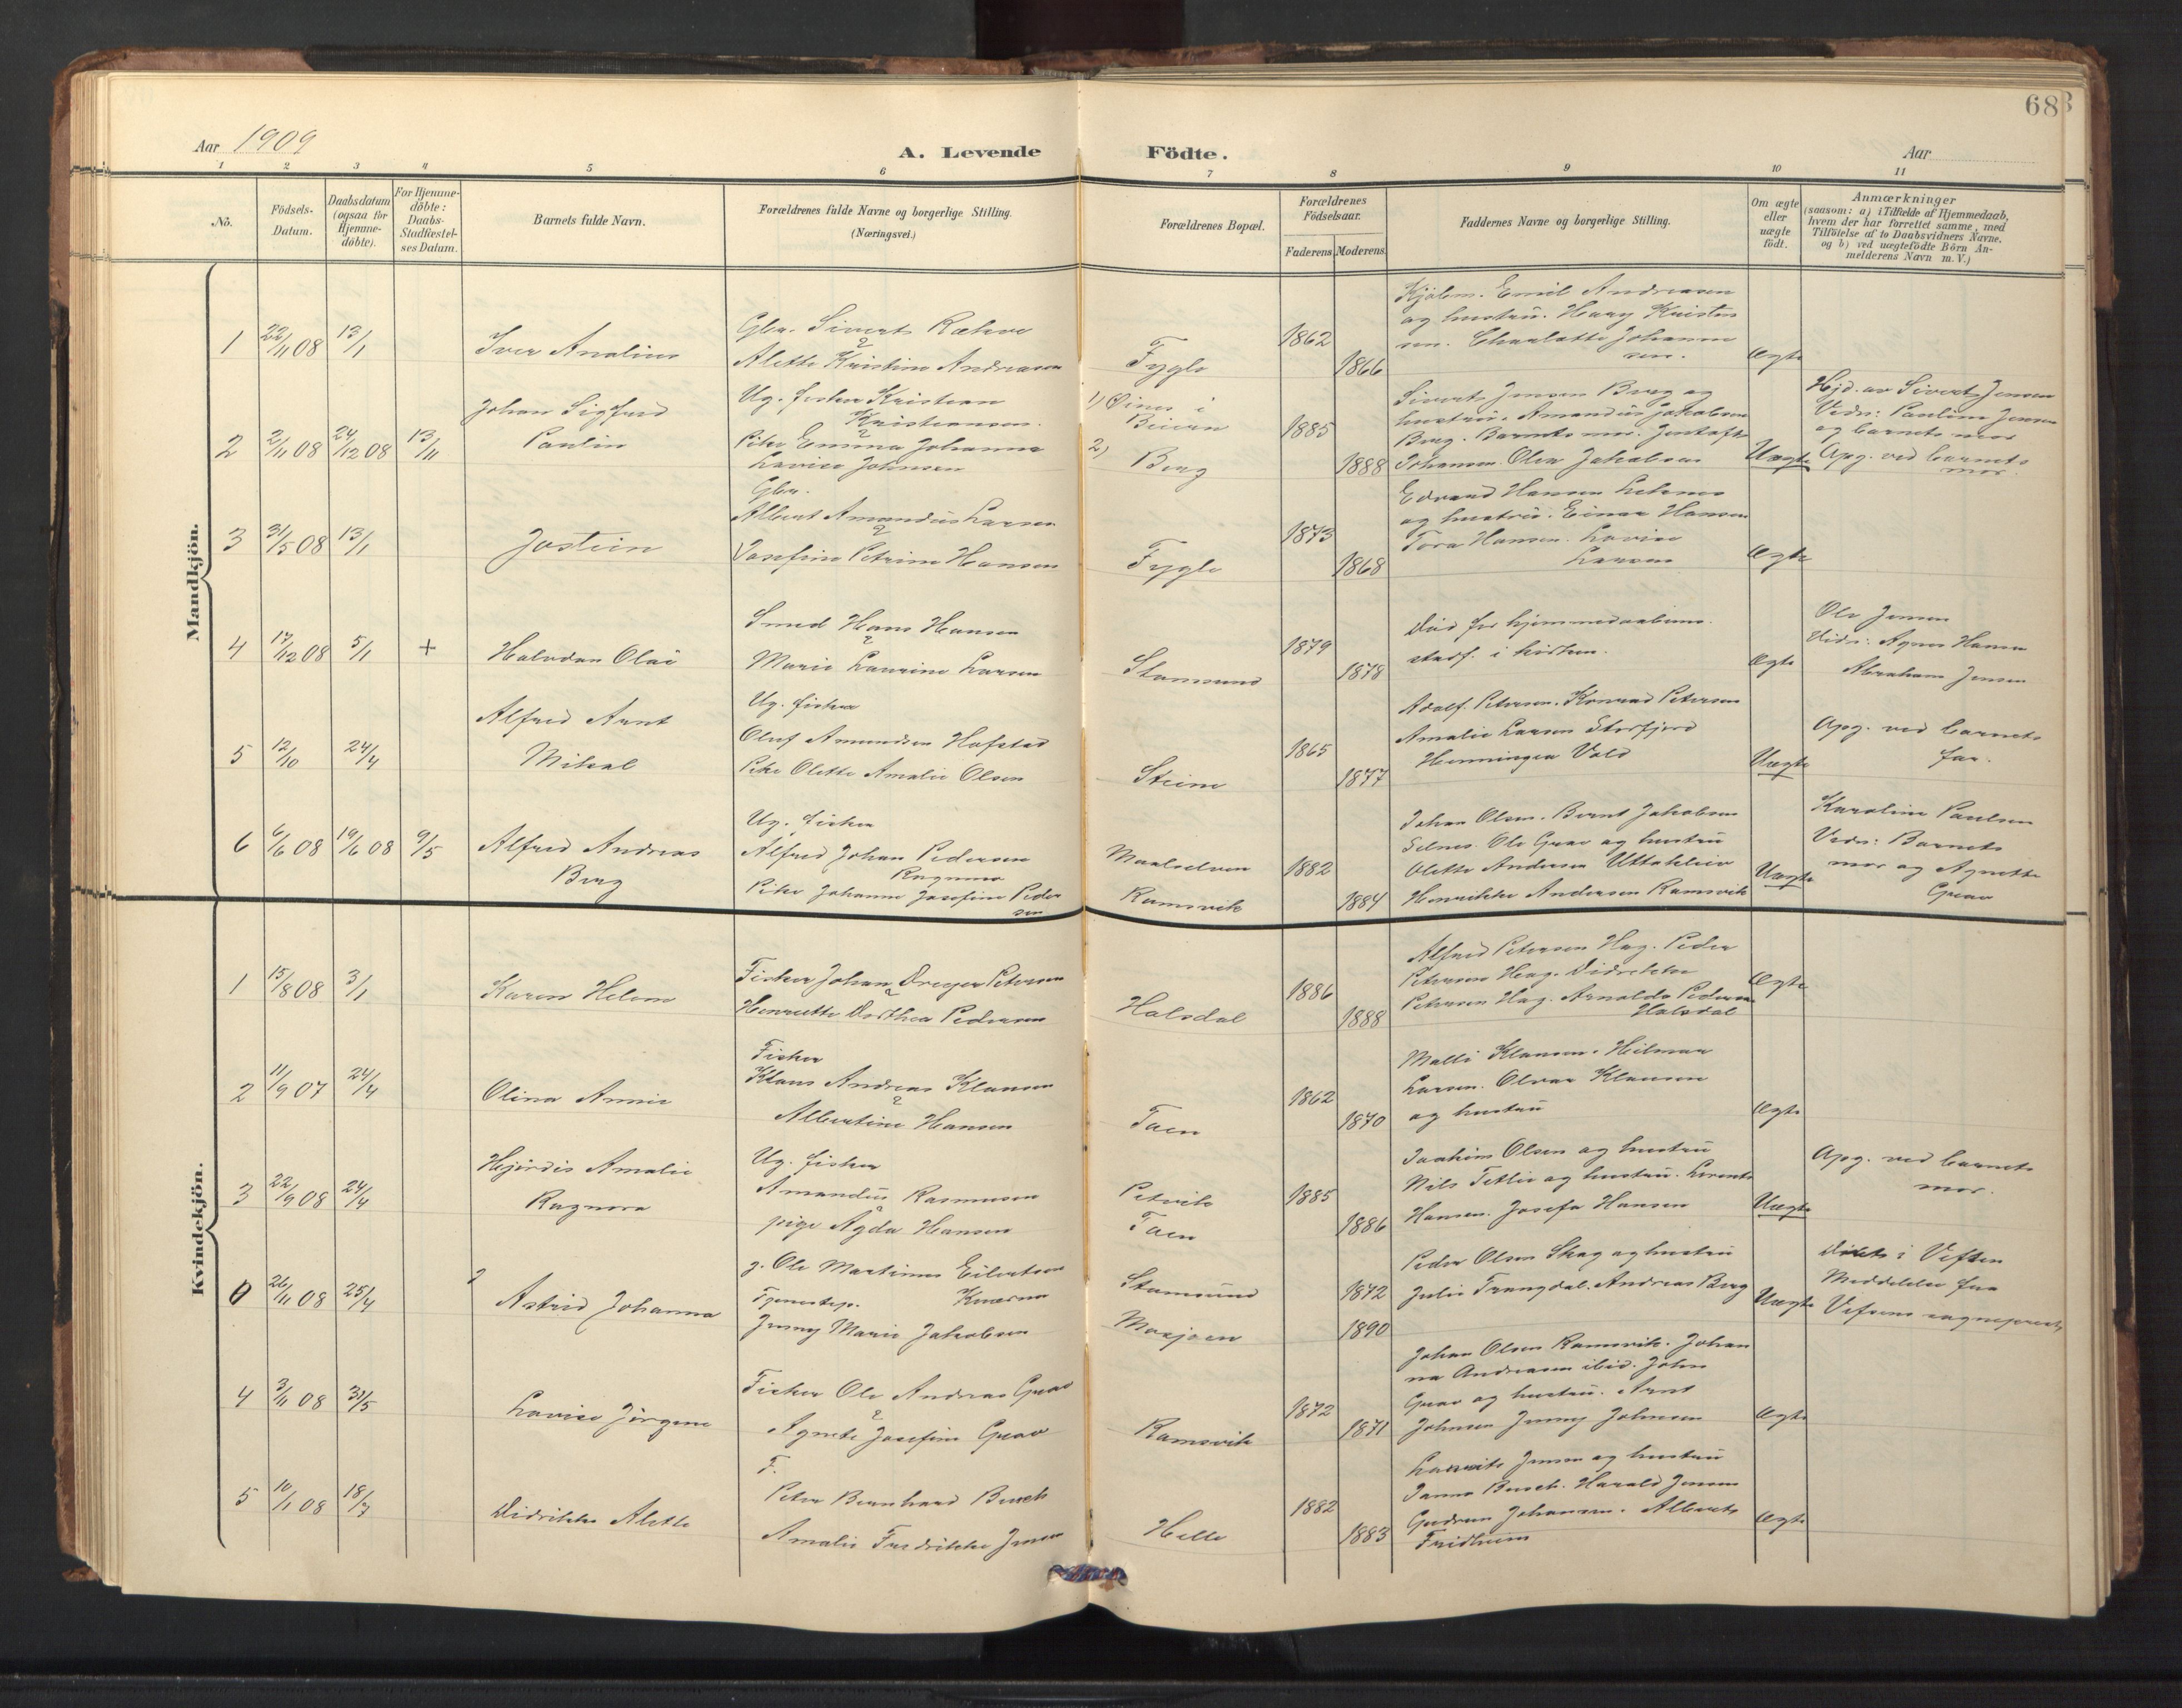 68
Aar 1909
A. Levende Födte.
Aar
1 2 3 4 5 6 7 8 9 10 11
No.
Födsels-
Datum.
Daabsdatum
(ogsaa for
Hjemme-
döbte).
For Hjemme-
döbte:
Daabs-
Stadfæstel-
ses Datum.
Barnets fulde Navn.
Forældrenes fulde Navne og borgerlige Stilling.
(Næringsvei.)
Forældrenes Bopæl.
Forældrenes
Födselsaar.
Faderens Moderens
Faddernes Navne og borgerlige Stilling.
Om ægte
eller
uægte
födt.
Anmærkninger
(saasom: a) i Tilfælde af Hjemmedaab,
hvem der har forrettet samme, med
Tilföielse af to Daabsvidners Navne,
og b) ved uægtefödte Börn An-
melderens Navn m. V.)
Mandkjön.
1 22/11 08 13/1
Iver Analius
Gbr. Sivert
Alette Kristine Andreasen
Fygle
1862
1866
Emil Andreasen
og hustru. Haag Kristen
sen. Charlotte Johanne
sen.
Ægte
2 2/11 08 24/12 08 13/11
Johan Sigfred
Paulin
Ug. fisker Kristian
Kristiansen.
Pike Emma Johanna
Lovise Johnsen
1) Oines i
Beiarn
2) Berg
1885
1888
Sivert Jensen Berg og
hustru. Amandus Jakobsen
Berg. Barnets mor. Gustaf
Johansen. Olea Jakobsen
Uægte
Hjd. av Sivert Jensen
Vidn: Pauline Jensen
og barnets mor
Apg. ved barnets
mor.
3 31/5 08 13/1
Jostein
Gbr.
Albert Amandus Larsen
Josefine Petrine Hansen
Fygle
1873
1868
Edvard Hansen Leknes
og hustru. Einar Hansen
Tora Hansen. Lovise
Larsen
Ægte
4 17/12 08 5/1 +
Halvdan Olai
Smed Hans Hansen
Marie Laurine Larsen
Stamsund
1879
1878
Död för hjemmedaabens
stadf. i kirken.
Ægte
Ole Jensen
Vidn: Agnes Hansen
Abraham Jensen
5 12/10 24/4
Alfred Arnt
Mikal
Ug. fisker
Oluf Amundsen Hofstad
Pike Olette Amalie Olsen
Steine
1865
1877
Adolf Petersen. Konrad Petersen
Amalie Larsen Storfjord
Henningea Vold
Uægte
Apg. ved barnets
far.
6 6/6 08 19/6 08 9/5
Alfred Andreas
Berg
Ug. fisker
Alfred Johan Pedersen
Pike Johanne Josefine Peder
sen
Maalselven
Ramsvik
1882
1884
Johan Olsen. Bernt Jakobsen
Ole Grav og hustru
Olette Andersen Uttakleiv
Henrikke Andersen Ramsvik
Uægte
Karoline Paulsen
Vidn: Barnets
mor og Agnette
Grav
Kvindekjön.
1 15/8 08 3/1
Karen Helene
Fisker Johan Dreyer Petersen
Henriette Dorthea Pedersen
Halsdal
1886
1888
Alfred Petersen Hag. Peder
Petersen Hag. Didrikke
Petersen Hag. Arnolda Pedersen
Halsdal
Ægte
2 11/9 07 24/4
Olina Annie
Fisker
Klaus Andreas Klausen
Albertine Hansen
Taen
1862
1870
Malli Klausen. Hilmar
Larsen. Olvar Klausen
og hustru
Ægte
3 22/9 08 24/4
Hjördis Amalie
Ragnora
Ug. fisker
Amandus Rasmussen
pige Agda Hansen
Petvik
Taen
1885
1886
Joakim Olsen og hustru
Nils Tetlie og hustru. Lorents
Hansen. Josefa Hansen
Uægte
Apg. ved barnets
mor.
0 26/11 08 25/4
Astrid Johanna
g. Ole Martinus Eilertsen
Tjenestep.
Jenny Marie Jakobsen
Stamsund
Mosjoen
1872
1890
Peder Olsen Skag og hustru
Julie Trangdal. Andreas Berg
Uægte
Döbt i Vefsen
Meddelelse fra
Vefsens sogneprest
4 3/11 08 31/5
Lovise Jörgine
Fisker Ole Andreas Grav
Agnete Josefine Grav
Ramsvik
1872
1871
Johan Olsen Ramsvik. Johan
na Andreasen ibid. John
Grav og hustru. Arnt
Johnsen Jenny Johnsen
Ægte
5 10/1 08 18/7
Didrikke Alette
F.
Peter Bernhard Busch
Amalie Fredrikke Jensen
Helle
1882
1883
Jensen og hustru
Janna Busch. Harald Jensen
Gudrun Johansen. Alberts
Fridheim
Ægte